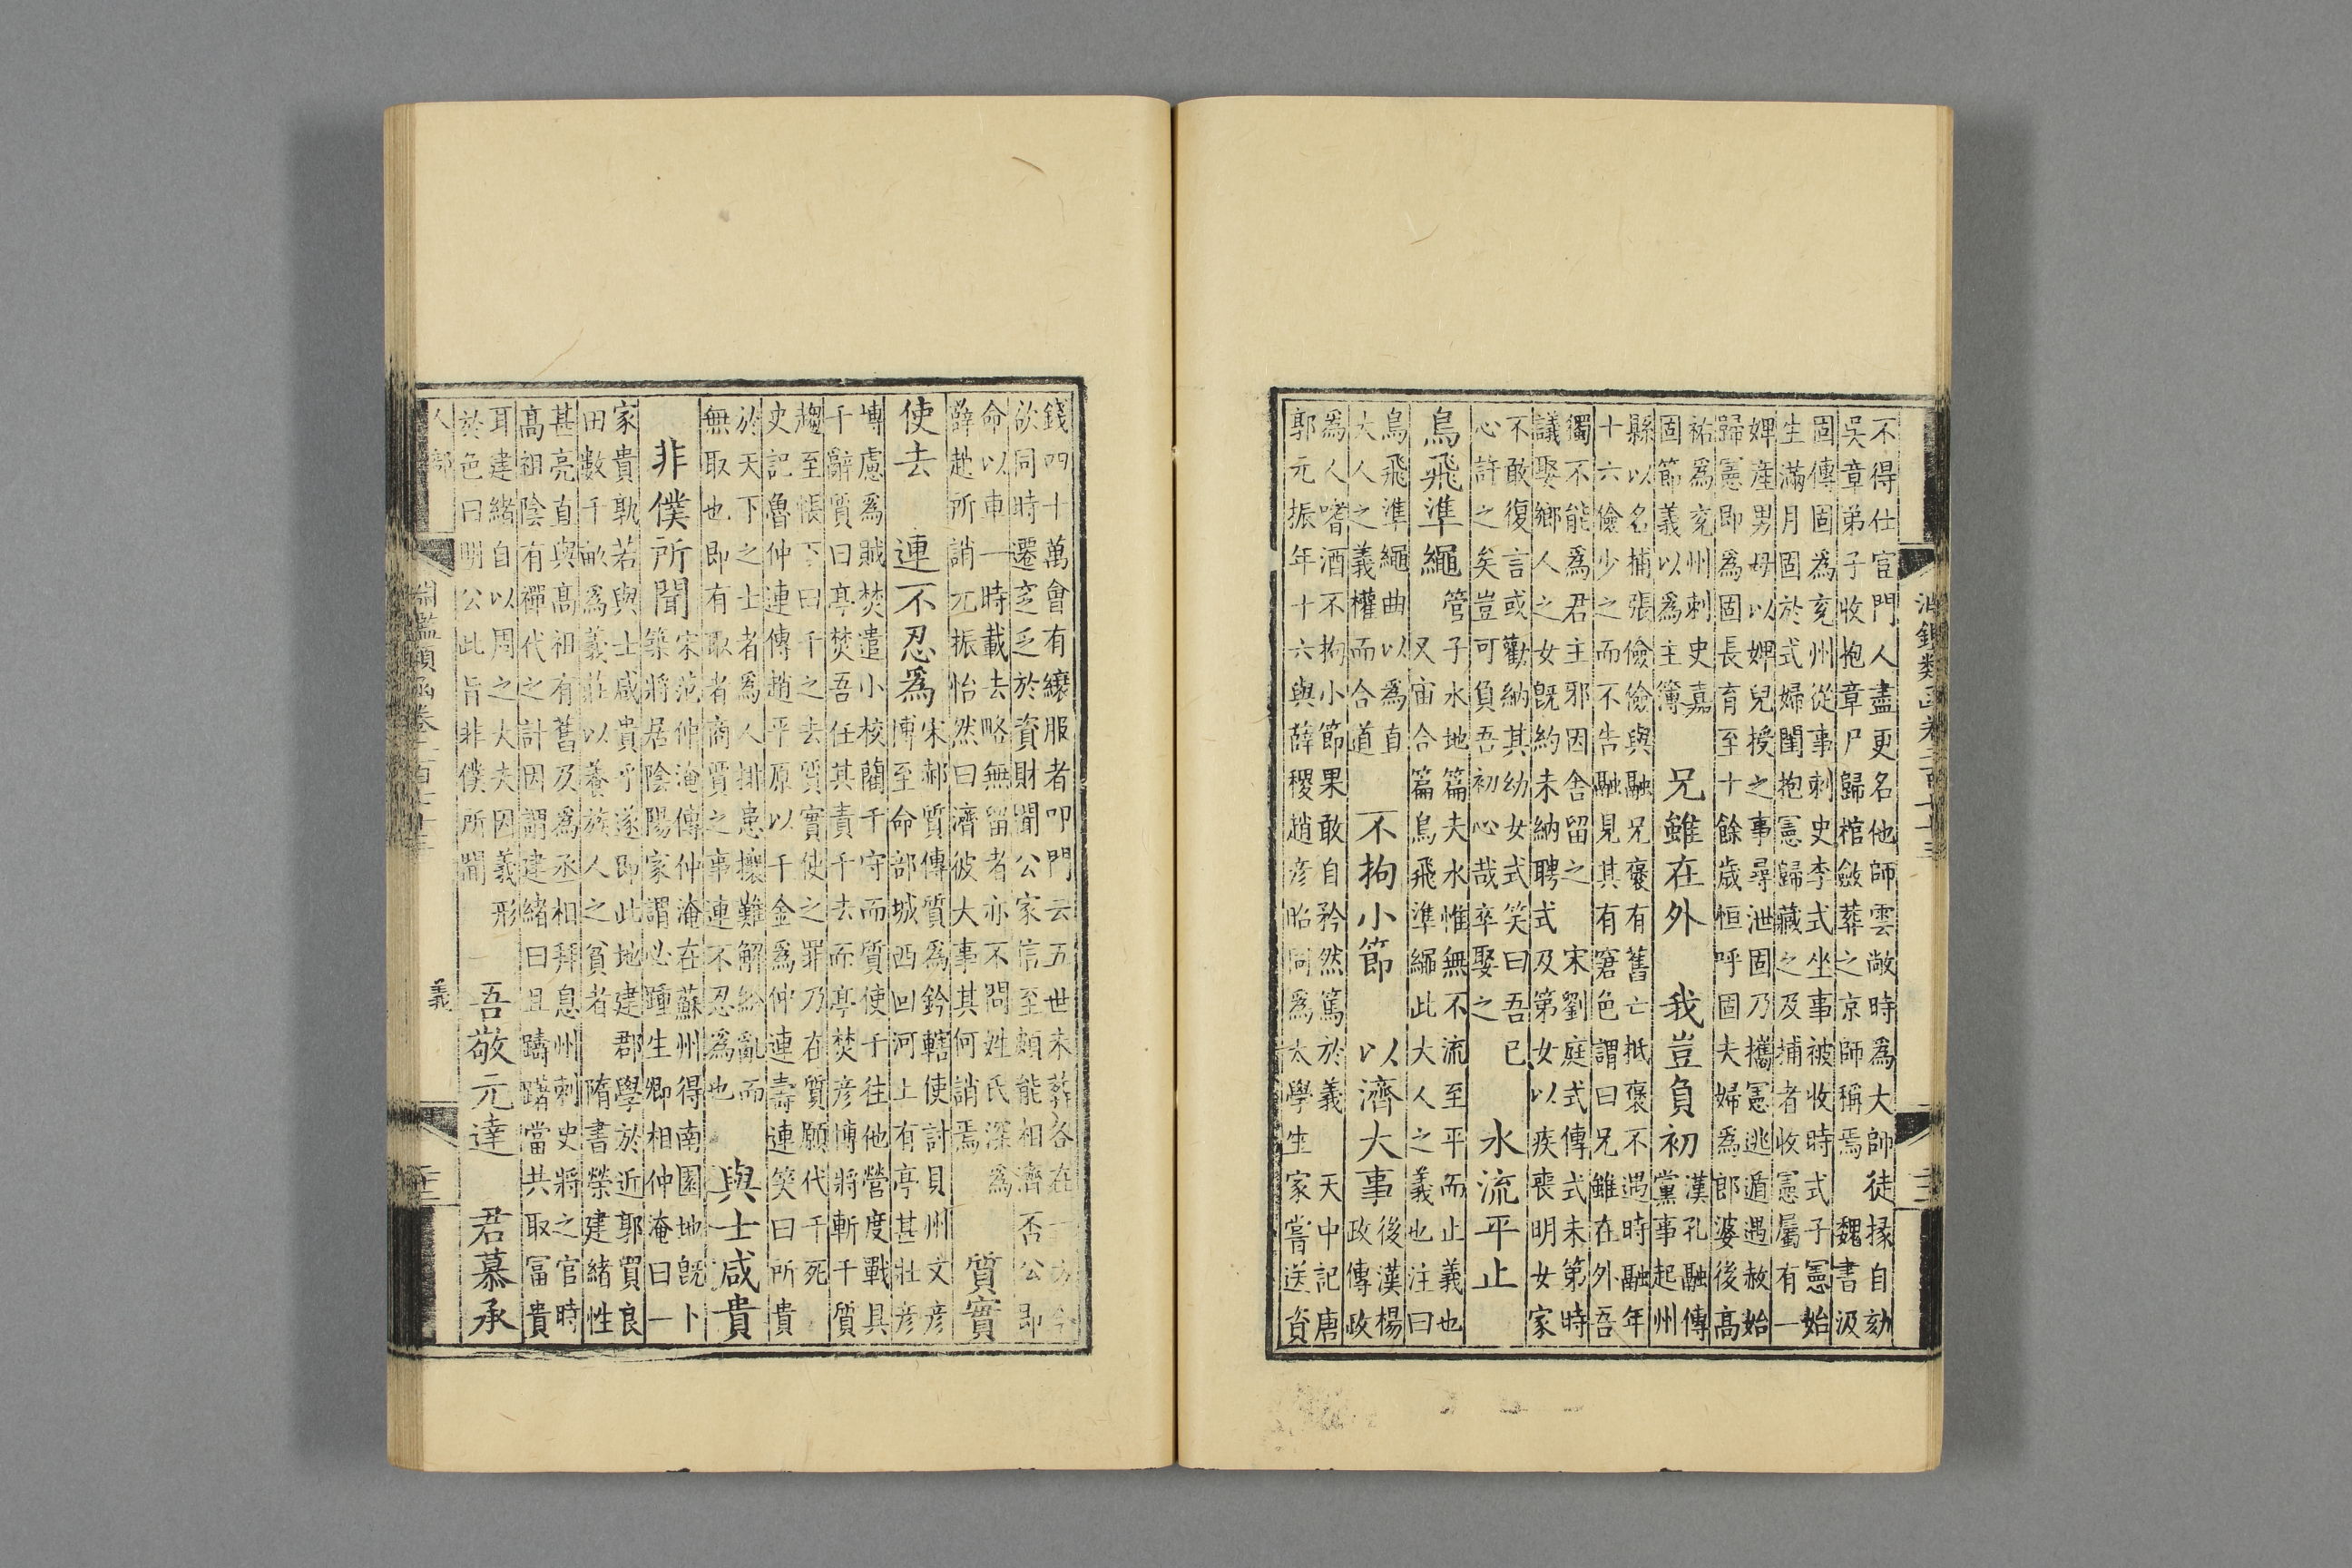 不得仕宦門人盡更名他師雲敞時爲大師徒掾自劾
吳章弟子收抱章尸歸棺斂葬之京師稱焉 魏書汲
固傳固爲兗州從事刺史李式坐事被收時式子憲始
生滿月固於式婦閨抱憲歸藏之及捕者收憲屬有一
婢產男母以婢兒授之事尋泄固乃攜憲逃遁遇赦始
歸憲即爲固長育至十餘歲恒呼固夫婦爲郎婆後高
祐爲兗州刺史嘉
固節義以爲主簿
兄雖在外 我豈負初
漢孔融傳
黨事起州
縣以名捕張儉儉與融兄褒有舊亡抵褒不遇時融年
十六儉少之而不告融見其有窘色謂曰兄雖在外吾
獨不能爲君主邪因舍留之 宋劉庭式傳式未第時
議娶鄉人之女旣約未納聘式及第女以疾喪明女家
不敢復言或勸納其幼女式笑曰吾已
心許之矣豈可負吾初心哉卒娶之
水流平止
鳥飛準繩
管子水地篇夫水惟無不流至平而止義也
又宙合篇鳥飛準繩此大人之義也注曰
鳥飛準繩曲以爲直
大人之義權而合道
不拘小節 以濟大事
後漢楊
政傳政
爲人嗜酒不拘小節果敢自矜然篤於義 天中記唐
郭元振年十六與薛稷趙彥昭同爲太學生家嘗送資
淵鑑類函卷二百七十三
錢四十萬會有縗服者叩門云五世未葬各在一方今
欲同時遷窆乏於資財聞公家信至頗能相濟否公即
命以車一時載去略無留者亦不問姓氏深爲
薛趙所誚元振怡然曰濟彼大事其何誚焉
質實
使去 連不忍爲
宋郝質傳質爲鈐轄使討貝州文彥
博至命部城西回河上有亭甚壯彥
博慮爲賊焚遣小校藺千守而質使千往他營度戰具
千辭質曰亭焚吾任其責千去而亭焚彥博將斬千質
趨至帳下曰千之去質實使之罪乃在質願代千死
史記魯仲連傳趙平原以千金爲仲連壽連笑曰所貴
於天下之士者爲人排患攘難解紛亂而
無取也即有取者商賈之事連不忍爲也
與士咸貴
非僕所聞
宋范仲淹傳仲淹在蘇州得南園地旣卜
築將居陰陽家謂必踵生卿相仲淹曰一
家貴孰若與士咸貴乎遂即此地建郡學於近郭買良
田數千畝爲義莊以養族人之貧者 隋書榮建緒性
甚亮直與高祖有舊及爲丞相拜息州刺史將之官時
高祖陰有禪代之計因謂建緒曰且躊躇當共取富貴
耳建緒自以周之大夫因義形
於色曰明公此旨非僕所聞
吾敬元達 君慕承
人部
淵鑑類函卷二百七十三
義